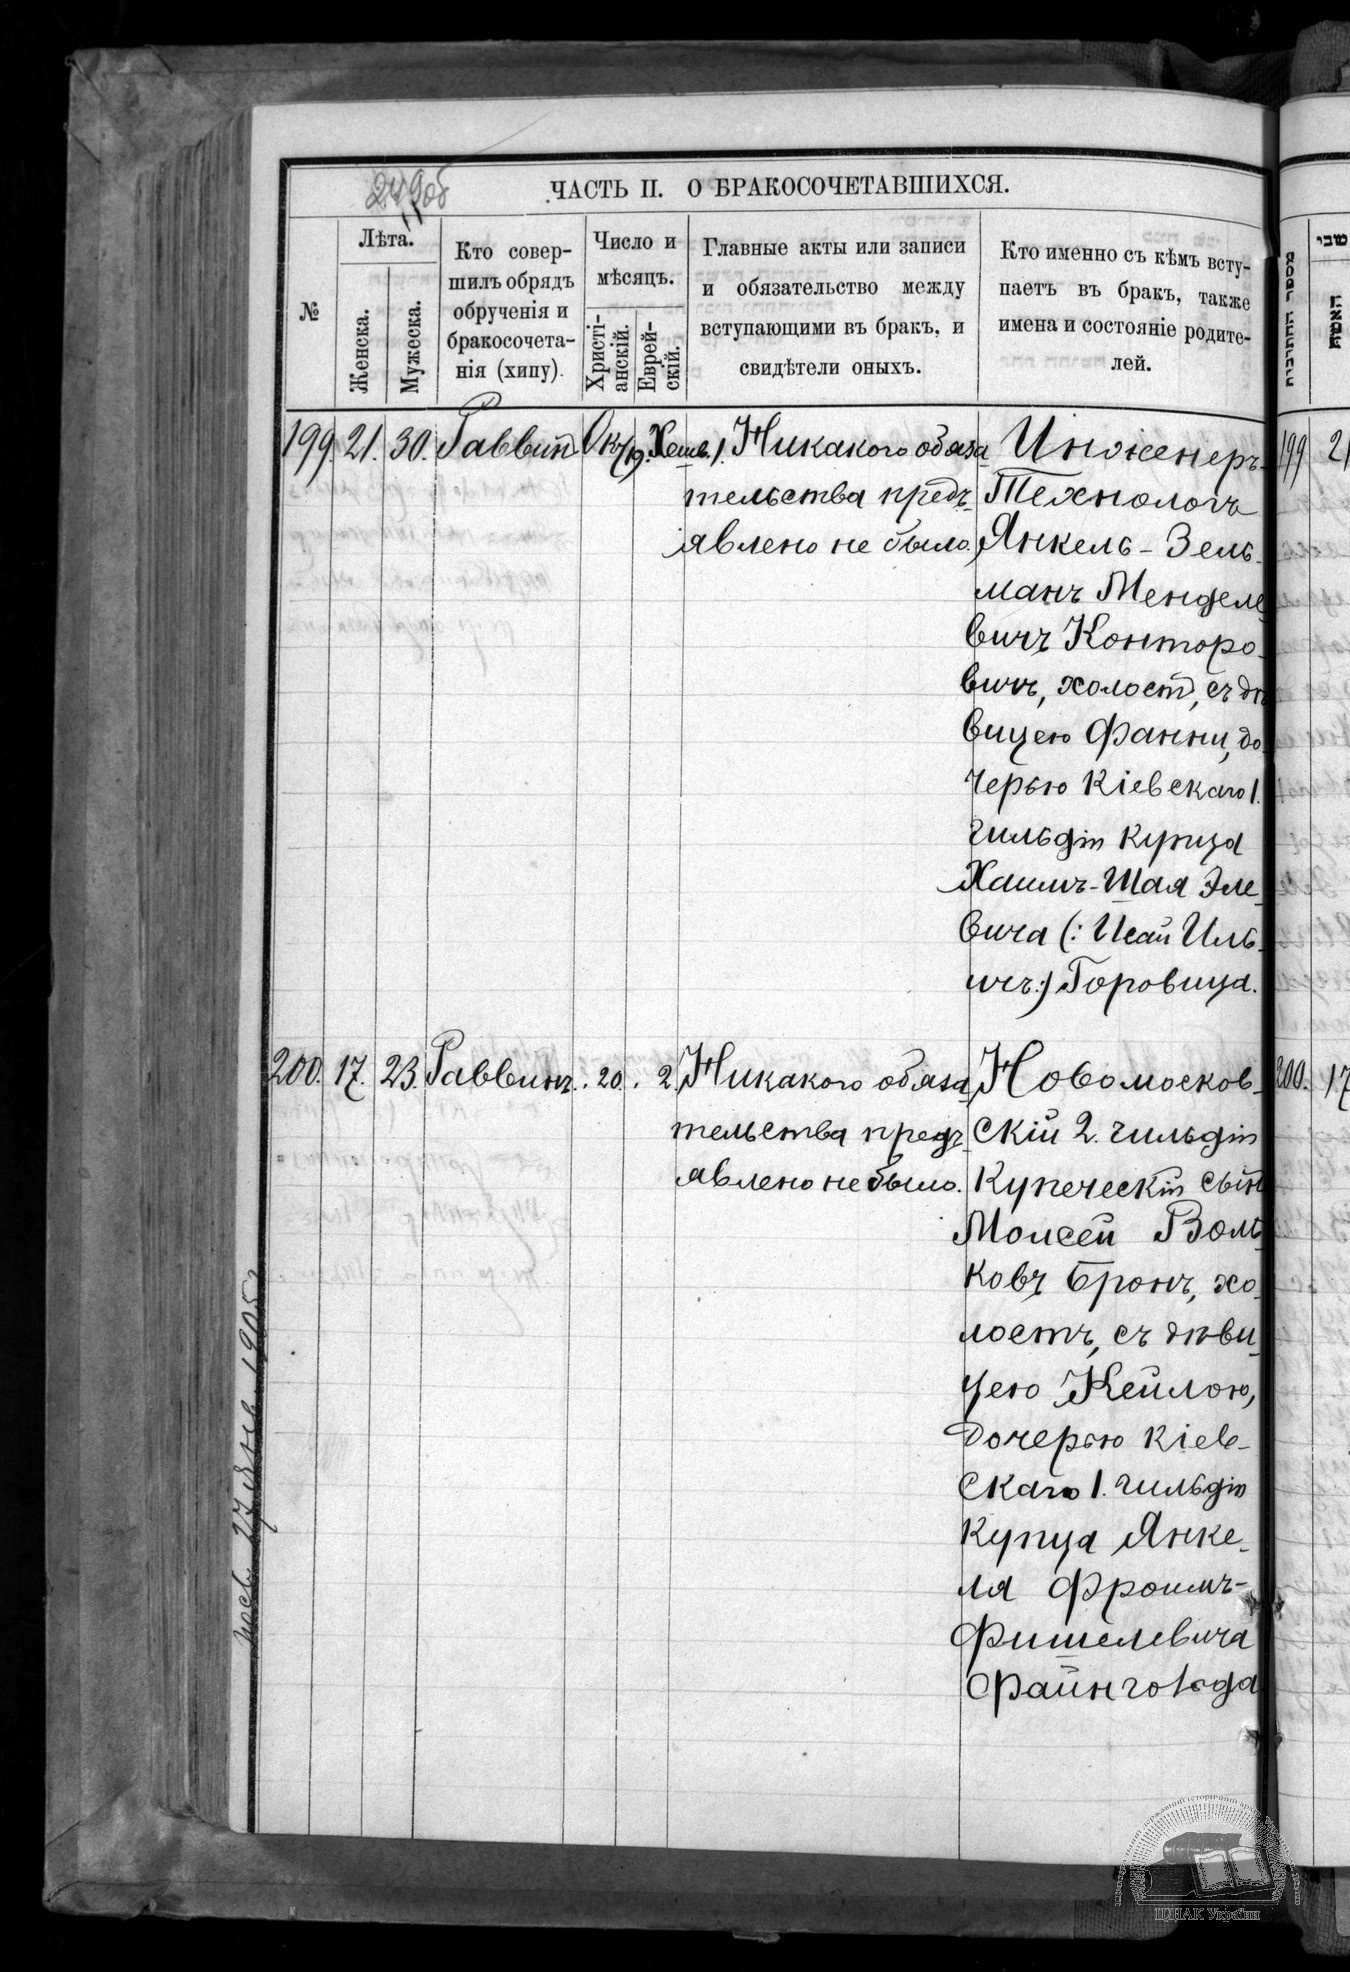 249об
ЧАСТЬ II. О БРАКОСОЧЕТАВШИХСЯ.
№
Лѣта.
Женска.
Мужеска.
Кто совер-
шилъ обрядъ
обрученія и
бракосочета-
нія (хипу).
Число и
мѣсяцъ.
Христі-
анскій.
Еврей-
скій.
Главные акты или записи
и обязательство между
вступающими въ бракъ, и
свидѣтели оныхъ.
Кто именно съ кѣмъ всту-
паетъ въ бракъ, также
имена и состояніе родите-
лей.
199. 21. 30. Раввин Окт/19. Хешв. 1. Никакого обяза
тельства предъ-
явлено не было.
Инженеръ-
Технологъ
Янкель-Зель-
манъ Менделе
вичъ Конторо-
вичъ, холост, съ дѣ
вицею Фанни, до
черью Кіевскаго 1.
гильдіи купца
Хаимъ-Шая Эле-
вича (: Исай Иль-
ичъ:) Горовица.
200. 17. 23. Раввинъ. 20. 2. Никакого обяза
тельства предъ-
явлено не было.
Новомосков-
скій 2. гильдіи
купеческій сын
Моисей Воль
ковъ Бронъ, хо-
лостъ, съ дѣви-
цею Кейлою,
дочерью Кіев-
скаго 1. гильдіи
купца Янке-
ля Фроимъ-
Фишелевича
Файнгольда
27 Янв. 1905 г.
מספר החתונות
שני
האשה
199 21
200. 17
ЦДІАК України